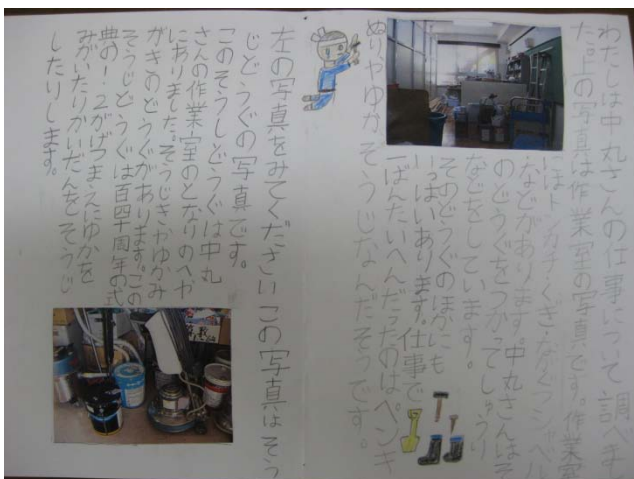 わたしは中丸さんの仕事いついて調べまし
た。上の写真は作業室の写真です。作業室
にはトンカチ、くぎ、なた、シャベル
などがあります。中丸さんはそ
のどうぐをつかってしゅうり
などをしています。
そのどうぐのほかにも
いっぱいあります。仕事で
一ばんたいへんだったのはペンキ
ぬりやゆかそうじなんだそうです。
左の写真をみてください この写真はそう
じどうぐの写真です。
このそうじどうぐは中丸
さんの作業室のとなりのへや
にありました。そうじきやゆかみ
がきのどうぐがあります。この
そうじどうぐは百四十周年の式
典の1、2かげつまえにゆかを
みがいたりかいだんをそうじ
したりします。